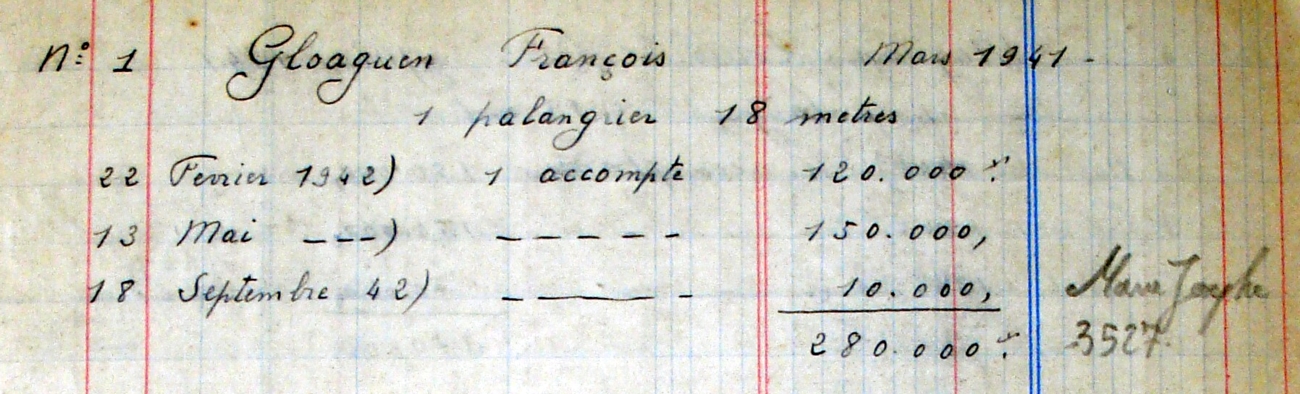 N° 1 Gloaguen François Mars 1941 -
1 palangrier 18 metres
22 Fevrier 1942) 1 accompte 120.000 F.
13 Mai ---) ----- 150.000,
18 Septembre 42) - —— - 10.000,
280.000 F.
Marie Josephe
3527